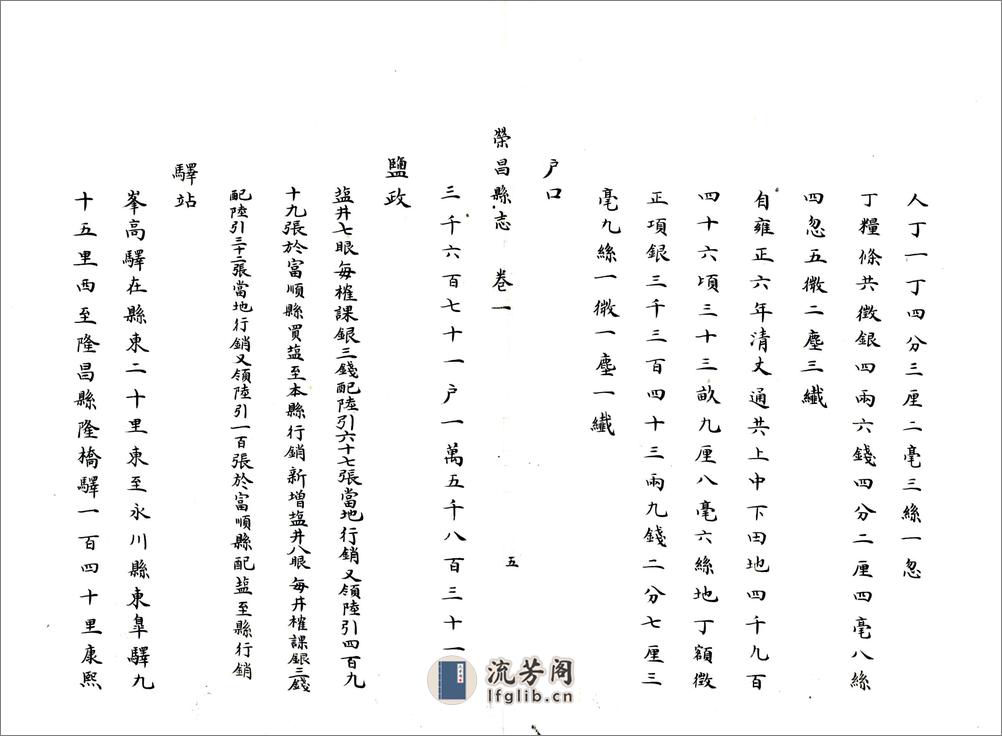 人丁一丁四分三厘二毫三絲一忽
丁糧條共徵銀四兩六錢四分二厘四毫八絲
四忽五微二塵三纖
自雍正六年清丈通共上中下田地四千九百
四十六頃三十三畝九厘八毫六絲地丁額徵
正項銀三千三百四十三兩九錢二分七厘三
毫九絲一微一塵一纖
戶口
榮昌縣志 卷一 五
三千六百七十一戶一萬五千八百三十一
鹽政
塩井七眼每榷課銀三錢配陸引六十七張當地行銷又領陸引四百九
十九張於富順縣買塩至本縣行銷新增塩井八眼每井榷課銀三錢
配陸引三十二張當地行銷又領陸引一百張於富順縣配塩至縣行銷
驛站
峯高驛在縣東二十里東至永川縣東皐驛九
十五里西至隆昌縣隆橋驛一百四十里康熙
流芳阁
lfglib.cn